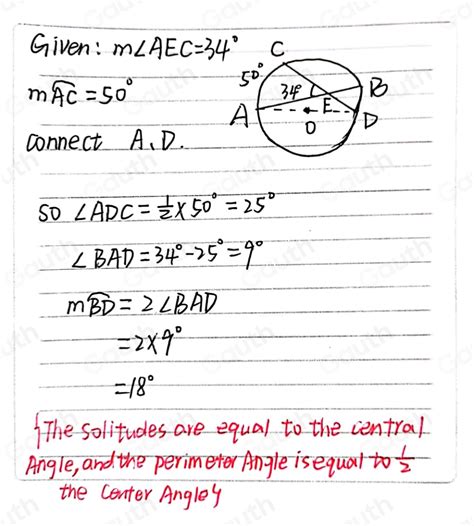 Given: m∠AEC=34° C
50°
mAC⌢ =50° 34° B
A E
connect A、D. O D
so ∠ADC= ½×50° = 25°
∠BAD=34°-25°=9°
mBD⌢= 2∠BAD
=2×9°
=18°
{The solitudes are equal to the central
Angle, and the perimeter Angle is equal to ½
the Center Angle}